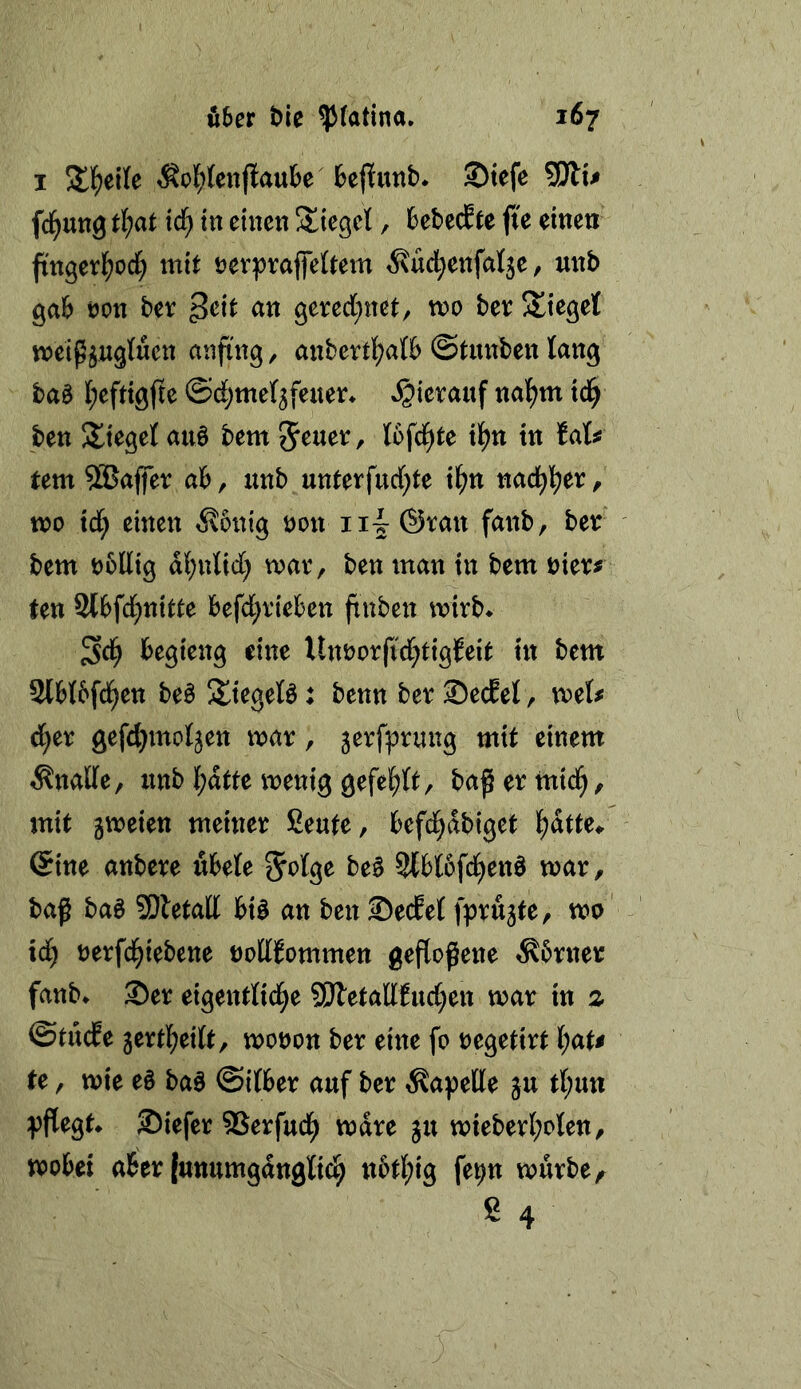 über die Platina. 167
1 Theile Kohlenstaube bestund. Diese Mi-
schung that ich in einen Tiegel, bedeckte sie einen
fingerhoch mit verprasseltem Küchensalze, und
gab von der Zeit an gerechnet, wo der Tiegel
weißzugluen anfing, anderthalb Stunden lang
das heftigste Schmelzfeuer. Hierauf nahm ich
den Tiegel aus dem Feuer, löschte ihn in kal-
tem Wasser ab, und untersuchte ihn nachher,
wo ich einen König von 11½ Gran fand, der
dem völlig ähnlich war, den man in dem vier-
ten Abschnitte beschrieben finden wird.
Ich begieng eine Unvorsichtigkeit in dem
Ablöschen des Tiegels: denn der Deckel, wel-
cher geschmolzen war, zersprung mit einem
Knalle, und hätte wenig gefehlt, daß er mich,
mit zweien meiner Leute, beschädiget hätte.
Eine andere übele Folge des Ablöschens war,
daß das Metall bis an den Deckel sprüzte, wo
ich verschiedene vollkommen gestoßene Körner
fand. Der eigentliche Metallkuchen war in 2
Stücke zertheilt, wovon der eine so vegetirt hat-
te, wie es das Silber auf der Kapelle zu thun
pflegt. Dieser Versuch wäre zu wiederholen,
wobei aber unumgänglich nöthig seyn würde,
L 4